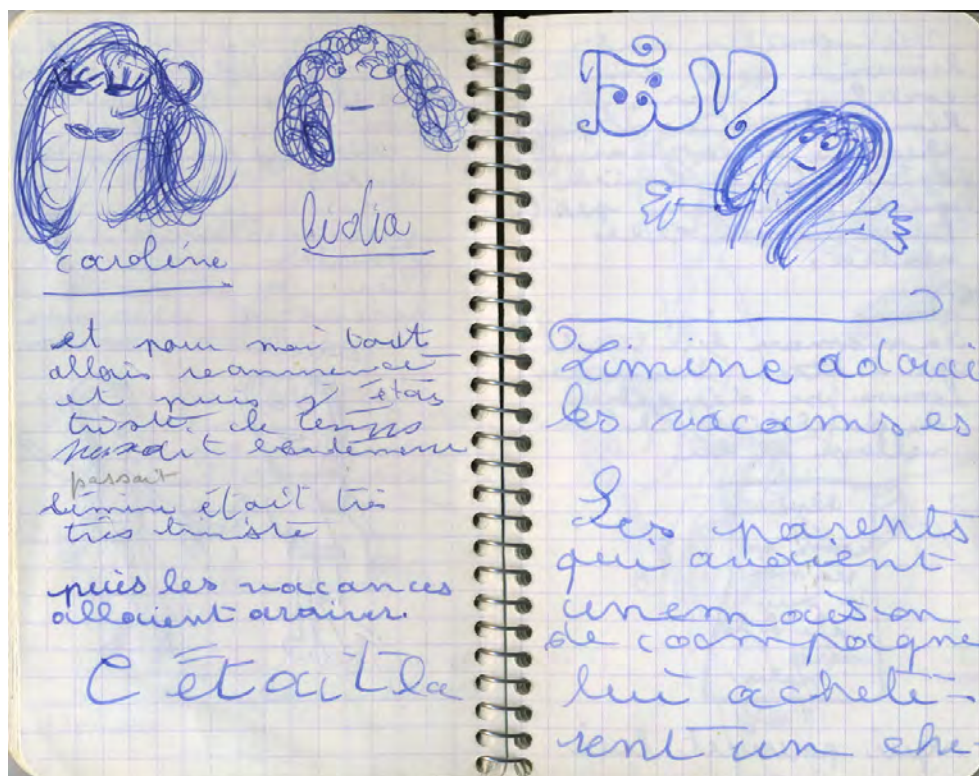 caroline
lidia
et pour moi tout
allais recommencé
et puis j'étais
triste. le temps
passait lentement
passait
limine était très
très triste
puis les vacances
allaient arriver.
C'était la
FIN
Limine adorai
les vacamses
Les parents
qui avaient
unemaison
de coampagne
lui acheté-
rent un che-